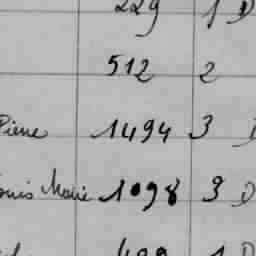 229 1 D
512 2
Pierre 1494 3
Louis Marie 1098 3 D
499 1 D